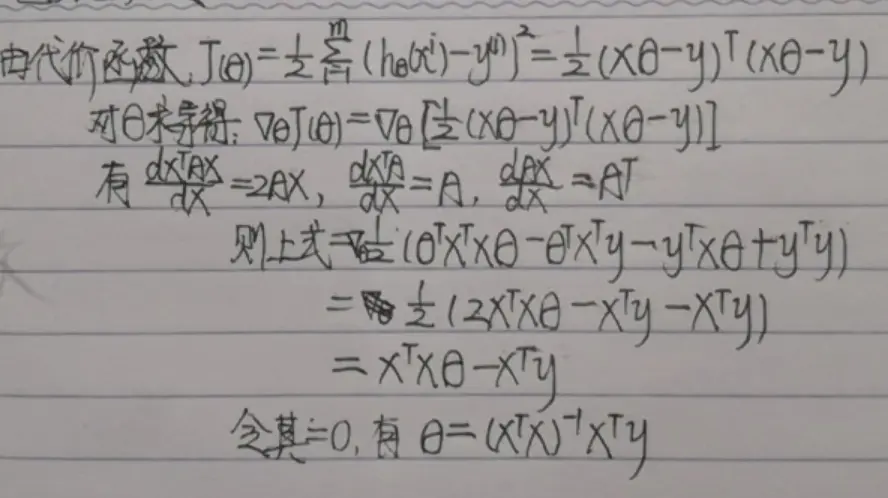 由代价函数, J(θ) = 1/2 Σ_{i=1}^{m} (h_θ(x^i) − y^{(i)})^2 = 1/2 (Xθ − y)^T (Xθ − y)
对θ求导得: ∇_θ J(θ) = ∇_θ [1/2 (Xθ − y)^T (Xθ − y)]
有 dX^TAX/dX = 2AX, dX^TA/dX = A, dAX/dX = A^T
则上式 = ∇_θ 1/2 (θ^T X^T Xθ − θ^T X^T y − y^T Xθ + y^T y)
= 1/2 (2X^T Xθ − X^T y − X^T y)
= X^T Xθ − X^T y
令其=0, 有 θ = (X^T X)^{-1} X^T y